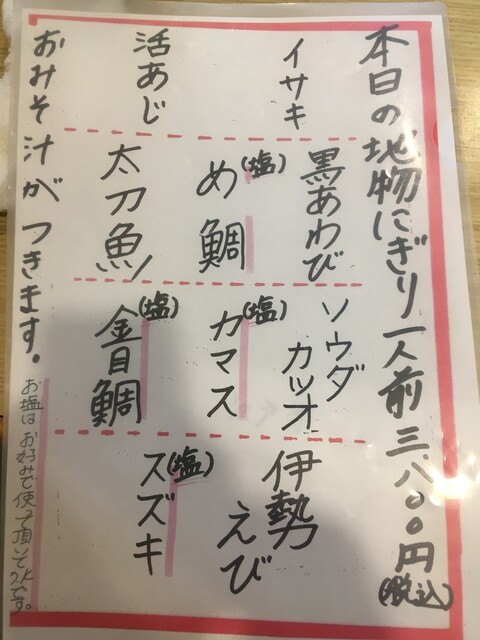 本日の地物にぎり一人前三、八〇〇円(税込)
イサキ
活あじ
黒あわび
(塩)め鯛
太刀魚
ソウダカツオ
(塩)カマス
(塩)金目鯛
伊勢えび
(塩)スズキ
おみそ汁がつきます。
お塩はお好みで使って頂いてOKです。